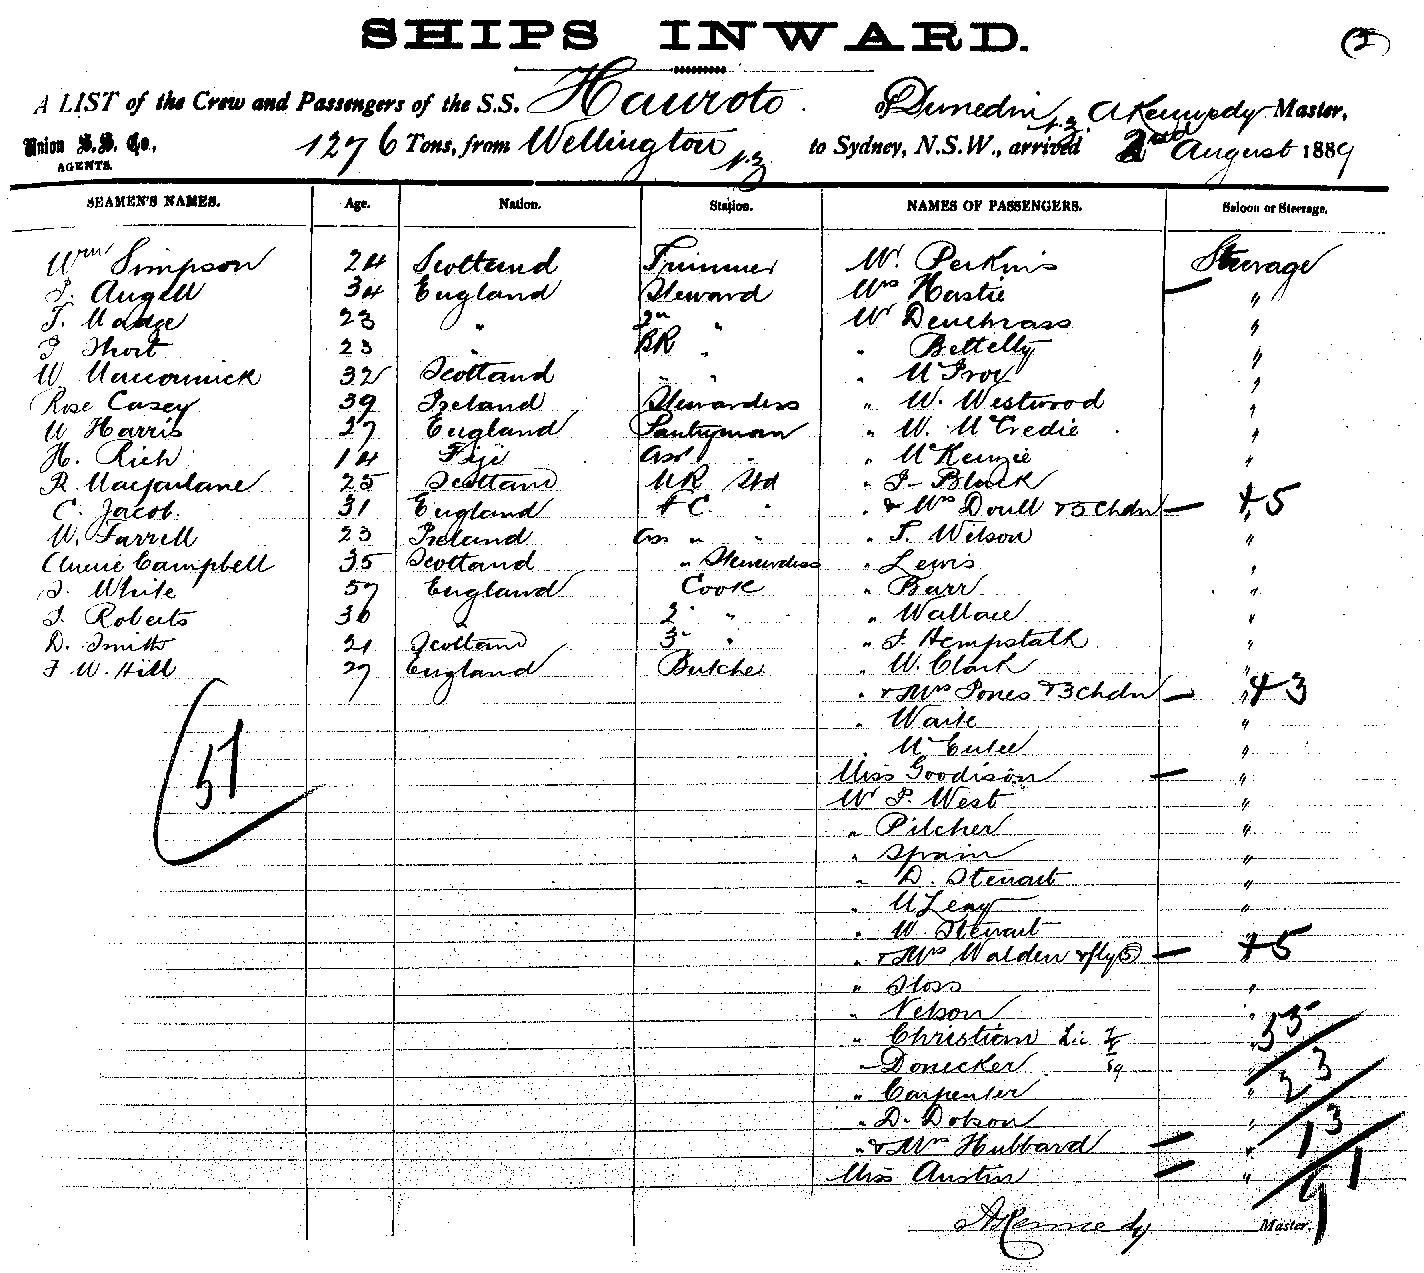 SHIPS INWARD.
(2)
A LIST of the Crew and Passengers of the S.S. Hauroto. of Dunedin N.Z. A Kennedy Master,
Union S.S. Co., AGENTS. 1276 Tons, from Wellington N.Z to Sydney, N.S.W., arrived 2nd August 1889
SEAMEN'S NAMES. Age. Nation. Station. NAMES OF PASSENGERS. Saloon or Steerage.
Wm Simpson 24 Scotland Trimmer Mr. Perkins Steerage
Angell 34 England Steward Mrs Hastie — "
T. Madge 23 " 2nd " Mr "
Short 23 " BR " " Bettelly "
W. Maccormick 32 Scotland " " " McTroy "
Rose Casey 39 Ireland Stewardess " W. Westwood "
W Harris 27 England Pantryman " W. McCredie "
H. Rich 14 Fiji Asst " " McKenzie "
R. Macfarlane 25 Scotland MR Std " J. Black "
C. Jacob. 31 England F C. " " & Mrs Doull & 5 Chdn — " + 5
W. Farrell 23 Ireland Ass " " " T. Wilson "
Campbell 35 Scotland " Stewardess " Lewis "
J. White 57 England Cook " Barr "
J. Roberts 36 2 " " Wallace "
D. Smith 21 Scotland 3 " " J. Hempstalk "
F W. Hill 27 England Butcher " W. Clark "
" & Mrs Jones & 3 Chdn — " + 3
" Waite "
" "
Miss Goodison — "
(51) Mr P. West "
" Pilcher "
" Spain "
" D. Stewart "
" McLeay "
" W. Stewart "
" & Mrs Walden & fly (5) — " + 5
" Sloss "
" Nelson "
" Christian "
" Donecker "
55
" Carpenter "
23
" D. Dobson "
13
" & Mrs Hubbard — "
Miss Austin — "
91
A Kennedy Master.